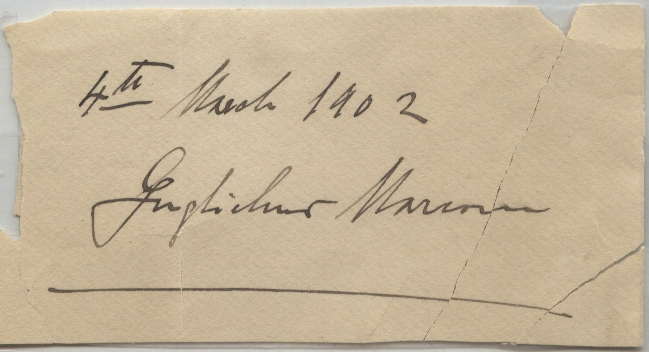 4th March 1902
Guglielmo Marconi